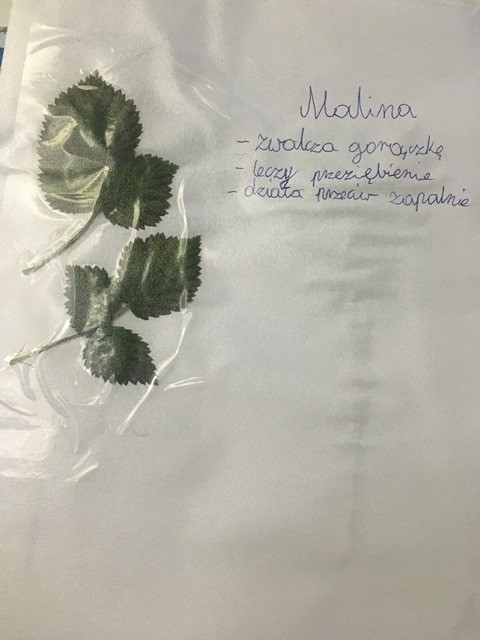 Malina
- zwalcza gorączkę
- leczy przeziębienie
- działa przeciw zapalnie